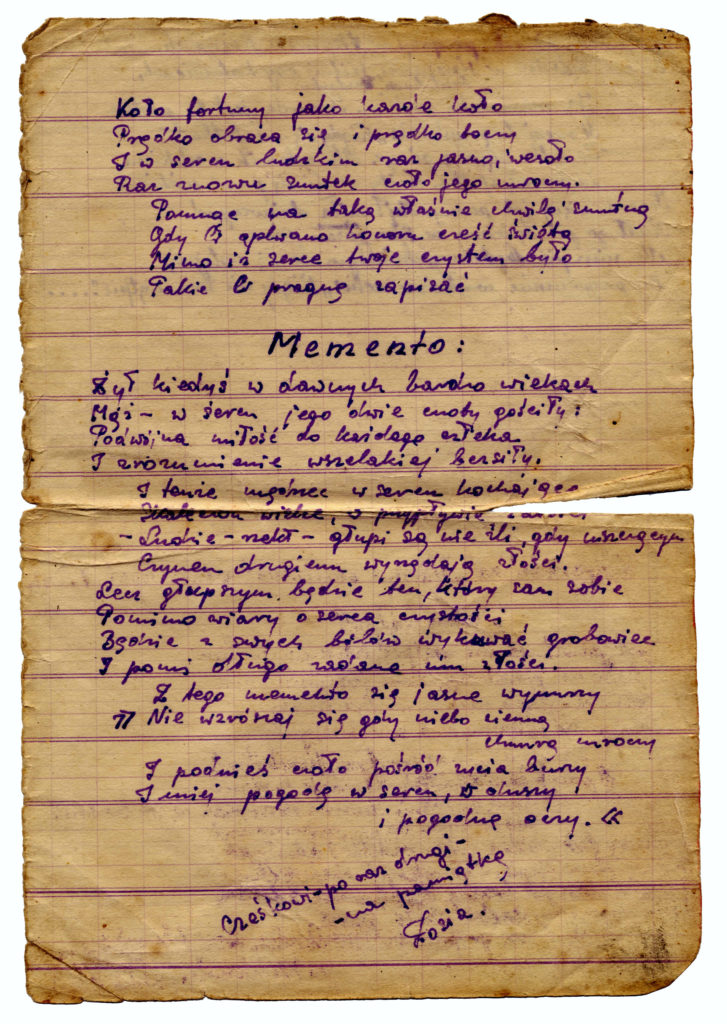 Koło fortuny jako każde koło
Prędko obraca się i prędko toczy
I w sercu ludzkim raz jasno, wesoło
Raz znowu smutek czoło jego mroczy.
Pomnąc na taką właśnie chwilę smutną
Gdy Ci oplwano honoru cześć świętą
Mimo iż serce twoje czystem było
Takie Ci pragnę zapisać
Memento:
Żył kiedyś w dawnych bardzo wiekach
Mąż - w sercu jego dwie cnoty gościły:
Podwójna miłość do każdego człeka
I zrozumienie wszelakiej bezsiły.
I tenże mędrzec w sercu kochające
wielce, o przypływie
- Ludzie - rzekł - głupi są nie źli, gdy wszczęcym
Czynem drugiemu wyrządzają złości.
Lecz głupszym będzie ten, który sam sobie
Pomimo wiary o serca czystości
Będzie z swych bólów wykuwać grobowiec
I pomni długo zadane mu złości.
Z tego memento się jasne wynurzy
" Nie wzruszaj się gdy niebo ciemną
chmurą mroczy
I podnieś czoło pośród życia burzy
I miej pogodę w sercu, w duszy
i pogodne oczy. «
Cześkowi - po raz drugi -
- na pamiątkę
Zosia.